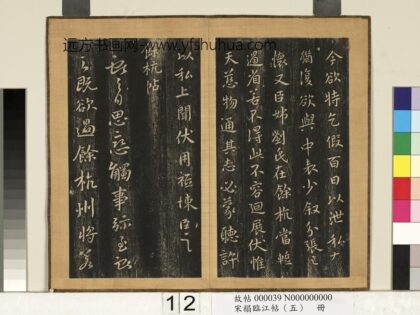 今欲特乞假百日以泄私
備寔欲與中表少敘分張
懷又臣姊劉氏在餘杭當
道省苦不得此不容迴展伏惟
天慈物通其志必蒙聽許
以私上聞伏用悚臣
餘杭帖
思戀觸事彌至
既欲過餘杭州將
远方书画网-www.yfshuhua.com
12
故帖 000039 N000000000
宋榻臨江帖(五) 冊